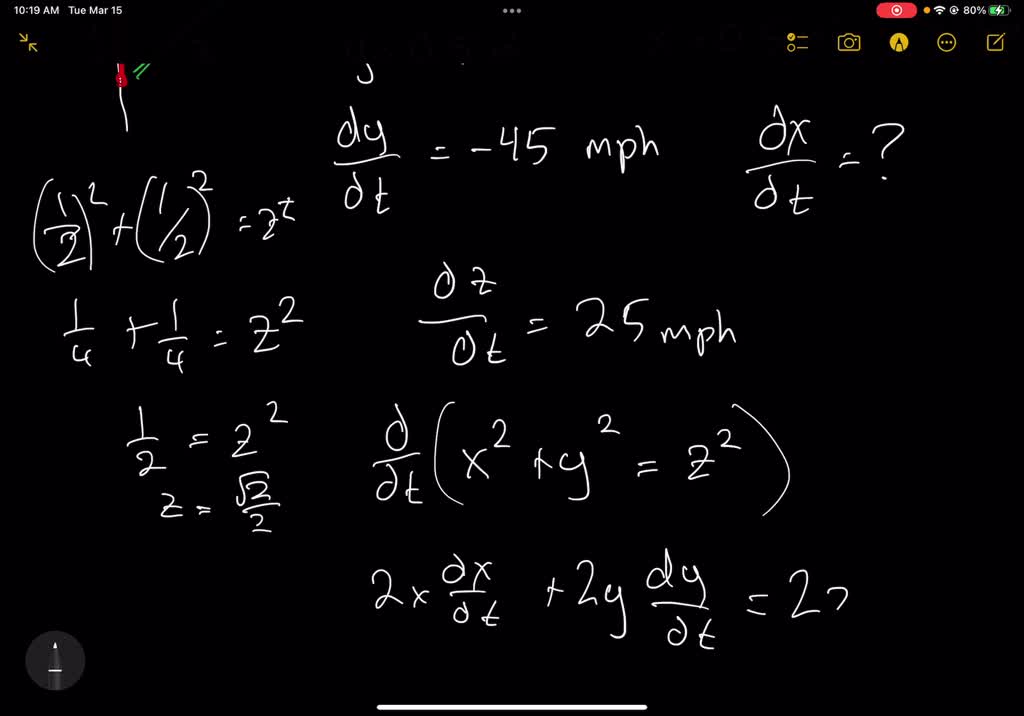 10:19 AM Tue Mar 15
80%
dy/dt = -45 mph
dx/dt = ?
(1/2)² + (1/2)² = z²
1/4 + 1/4 = z²
dz/dt = 25 mph
1/2 = z²
z = √2/2
d/dt (x² + y² = z²)
2x dx/dt + 2y dy/dt = 2